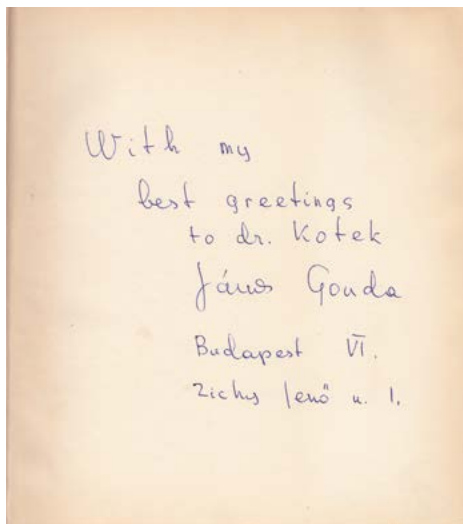 With my
best greetings
to dr. Kotek
János Gonda
Budapest VI.
Zichy Jenő u. 1.